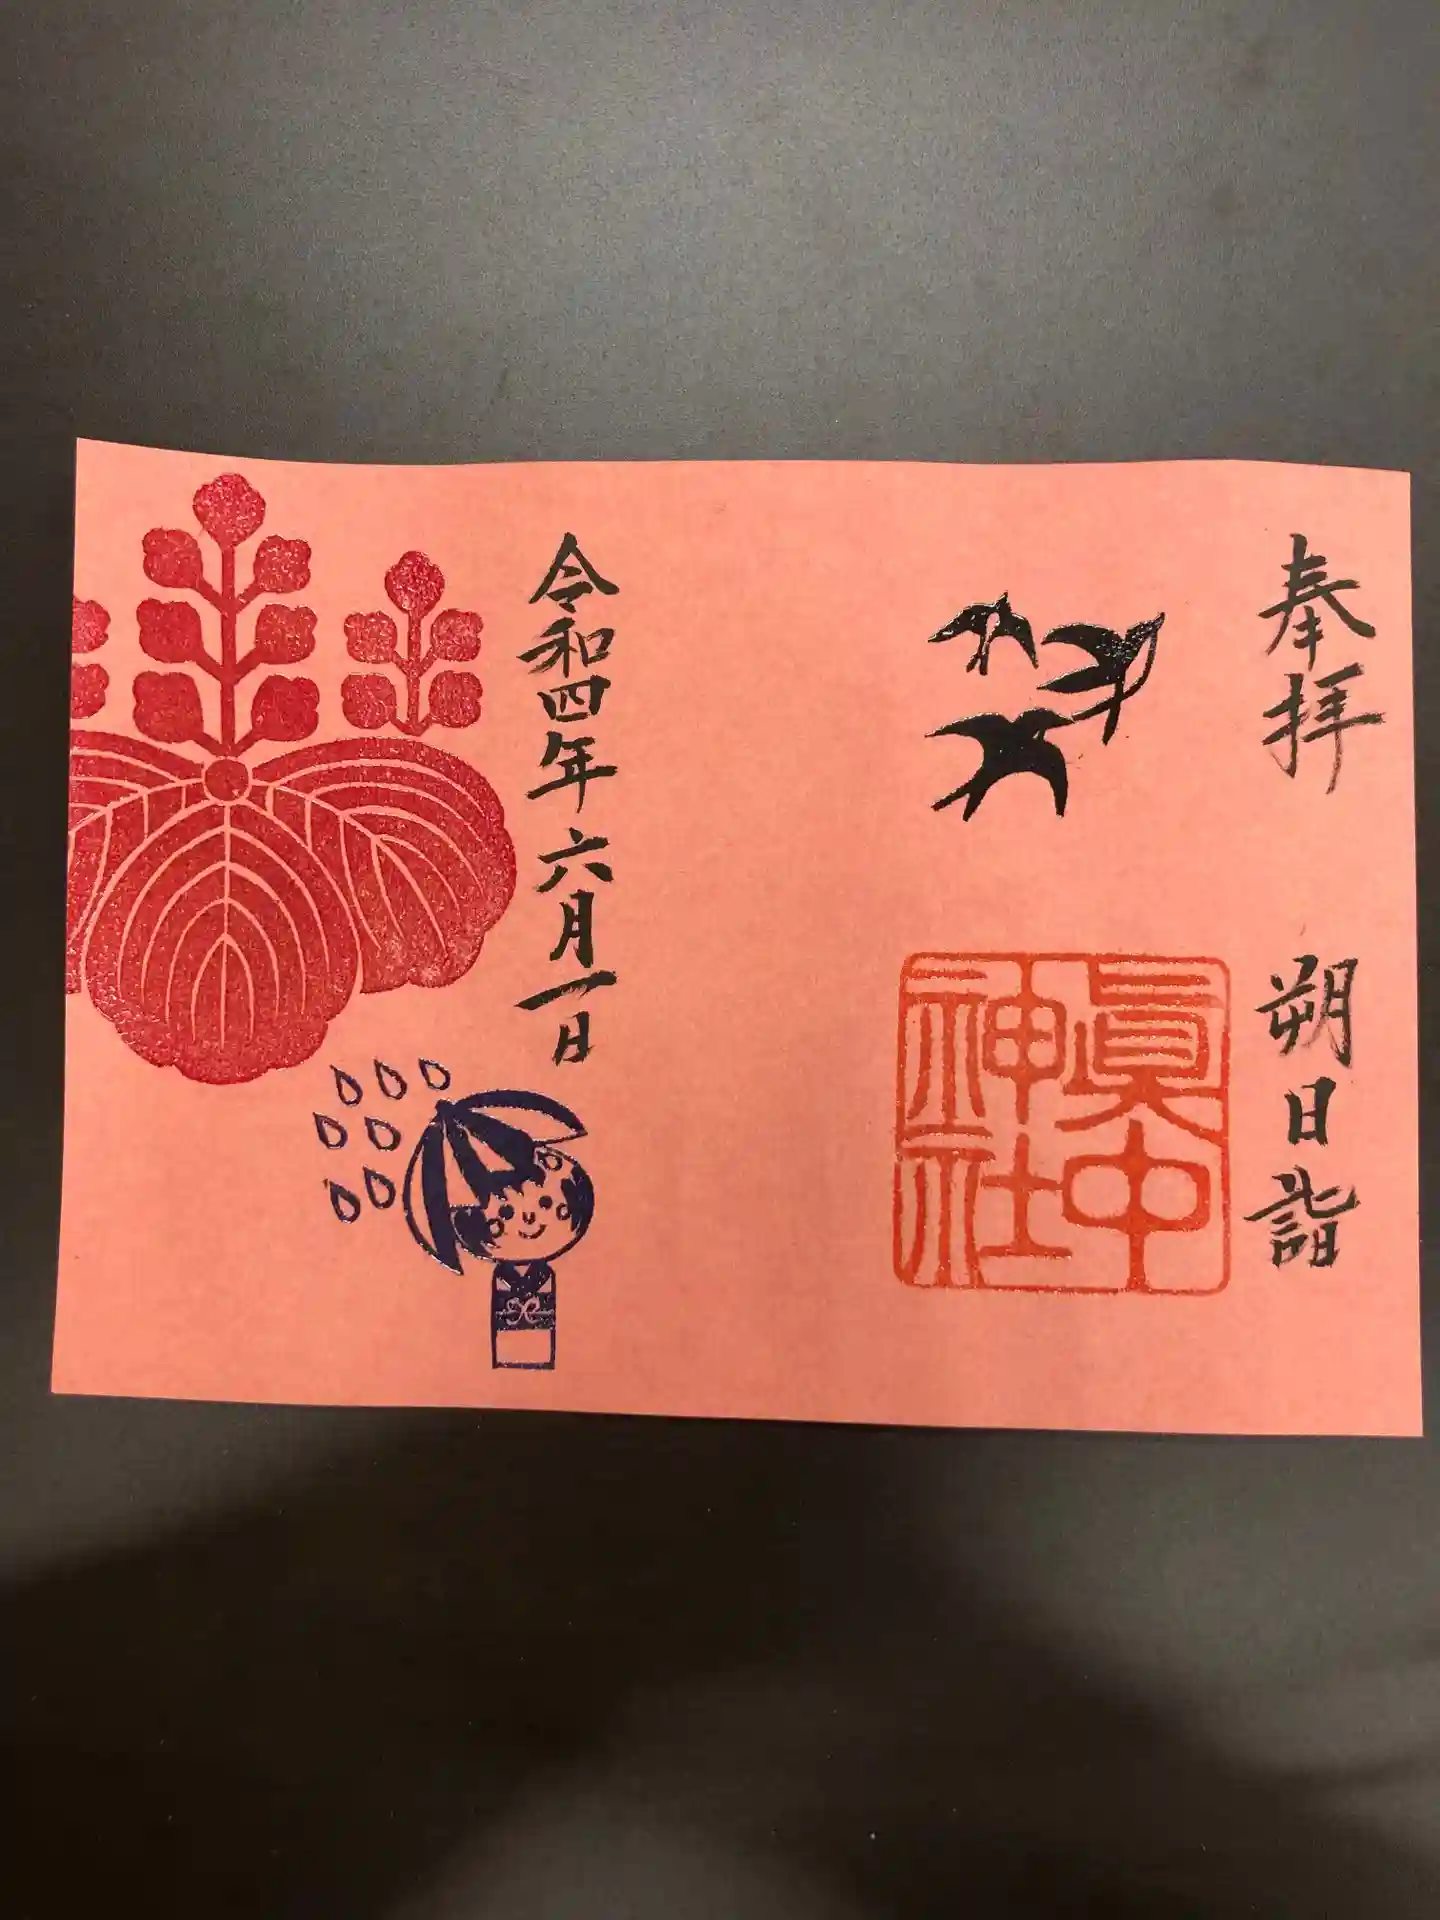 奉拝
朔日詣
眞中
神社
令和四年六月一日